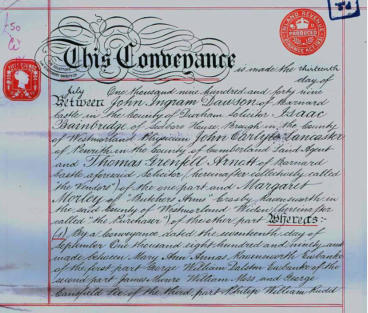 £50
This Conveyance is made the thirteenth
day of
July One thousand nine hundred and forty nine
Between John Ingram Dawson of Barnard
Castle in the County of Durham Solicitor Isaac
Bainbridge of House Brough in the County
of Westmorland Physician John Lancaster
of Penrith in the County of Cumberland Land Agent
and Thomas Grenfell Arnott of Barnard
Castle aforesaid Solicitor (hereinafter collectively called
"the Vendors") of the one part and Margaret
Morley of "Butchers Arms" Crosby Ravensworth in
the said County of Westmorland Widow (hereinafter
called "the Purchaser") of the other part Whereas:-
(1) By a Conveyance dated the seventeenth day of
September One thousand eight hundred and ninety and
made between Mary Ann Annas Ravensworth Eubanke
of the first part George William Dalston Eubanke of the
second part James Moore William Moss and George
Lee of the third part Philip William Rudd